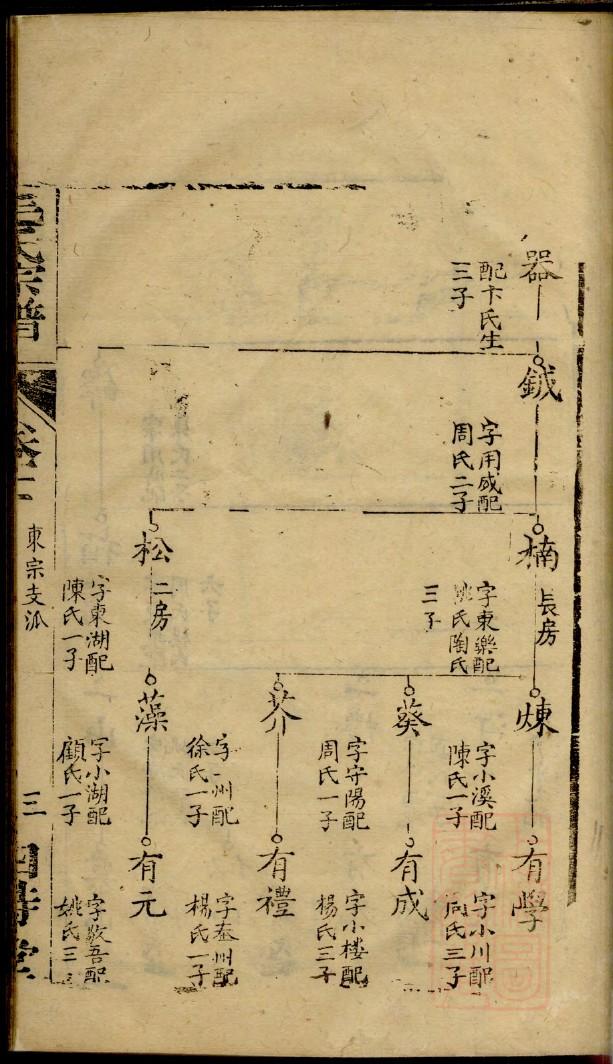 器
配卞氏生
三子
鉞
字用咸配
周氏二子
楠
長房
字東樂配
姚氏陶氏
三子
松
二房
字東湖配
陳氏一子
煉
字小溪配
陳氏一子
葵
字守陽配
周氏一子
芥
字一州配
徐氏一子
藻
字小湖配
顧氏一子
有學
字小川配
周氏三子
有成
字小樓配
楊氏三子
有禮
字泰州配
楊氏一子
有元
字敬吾配
姚氏三
氏宗譜
東宗支派
三